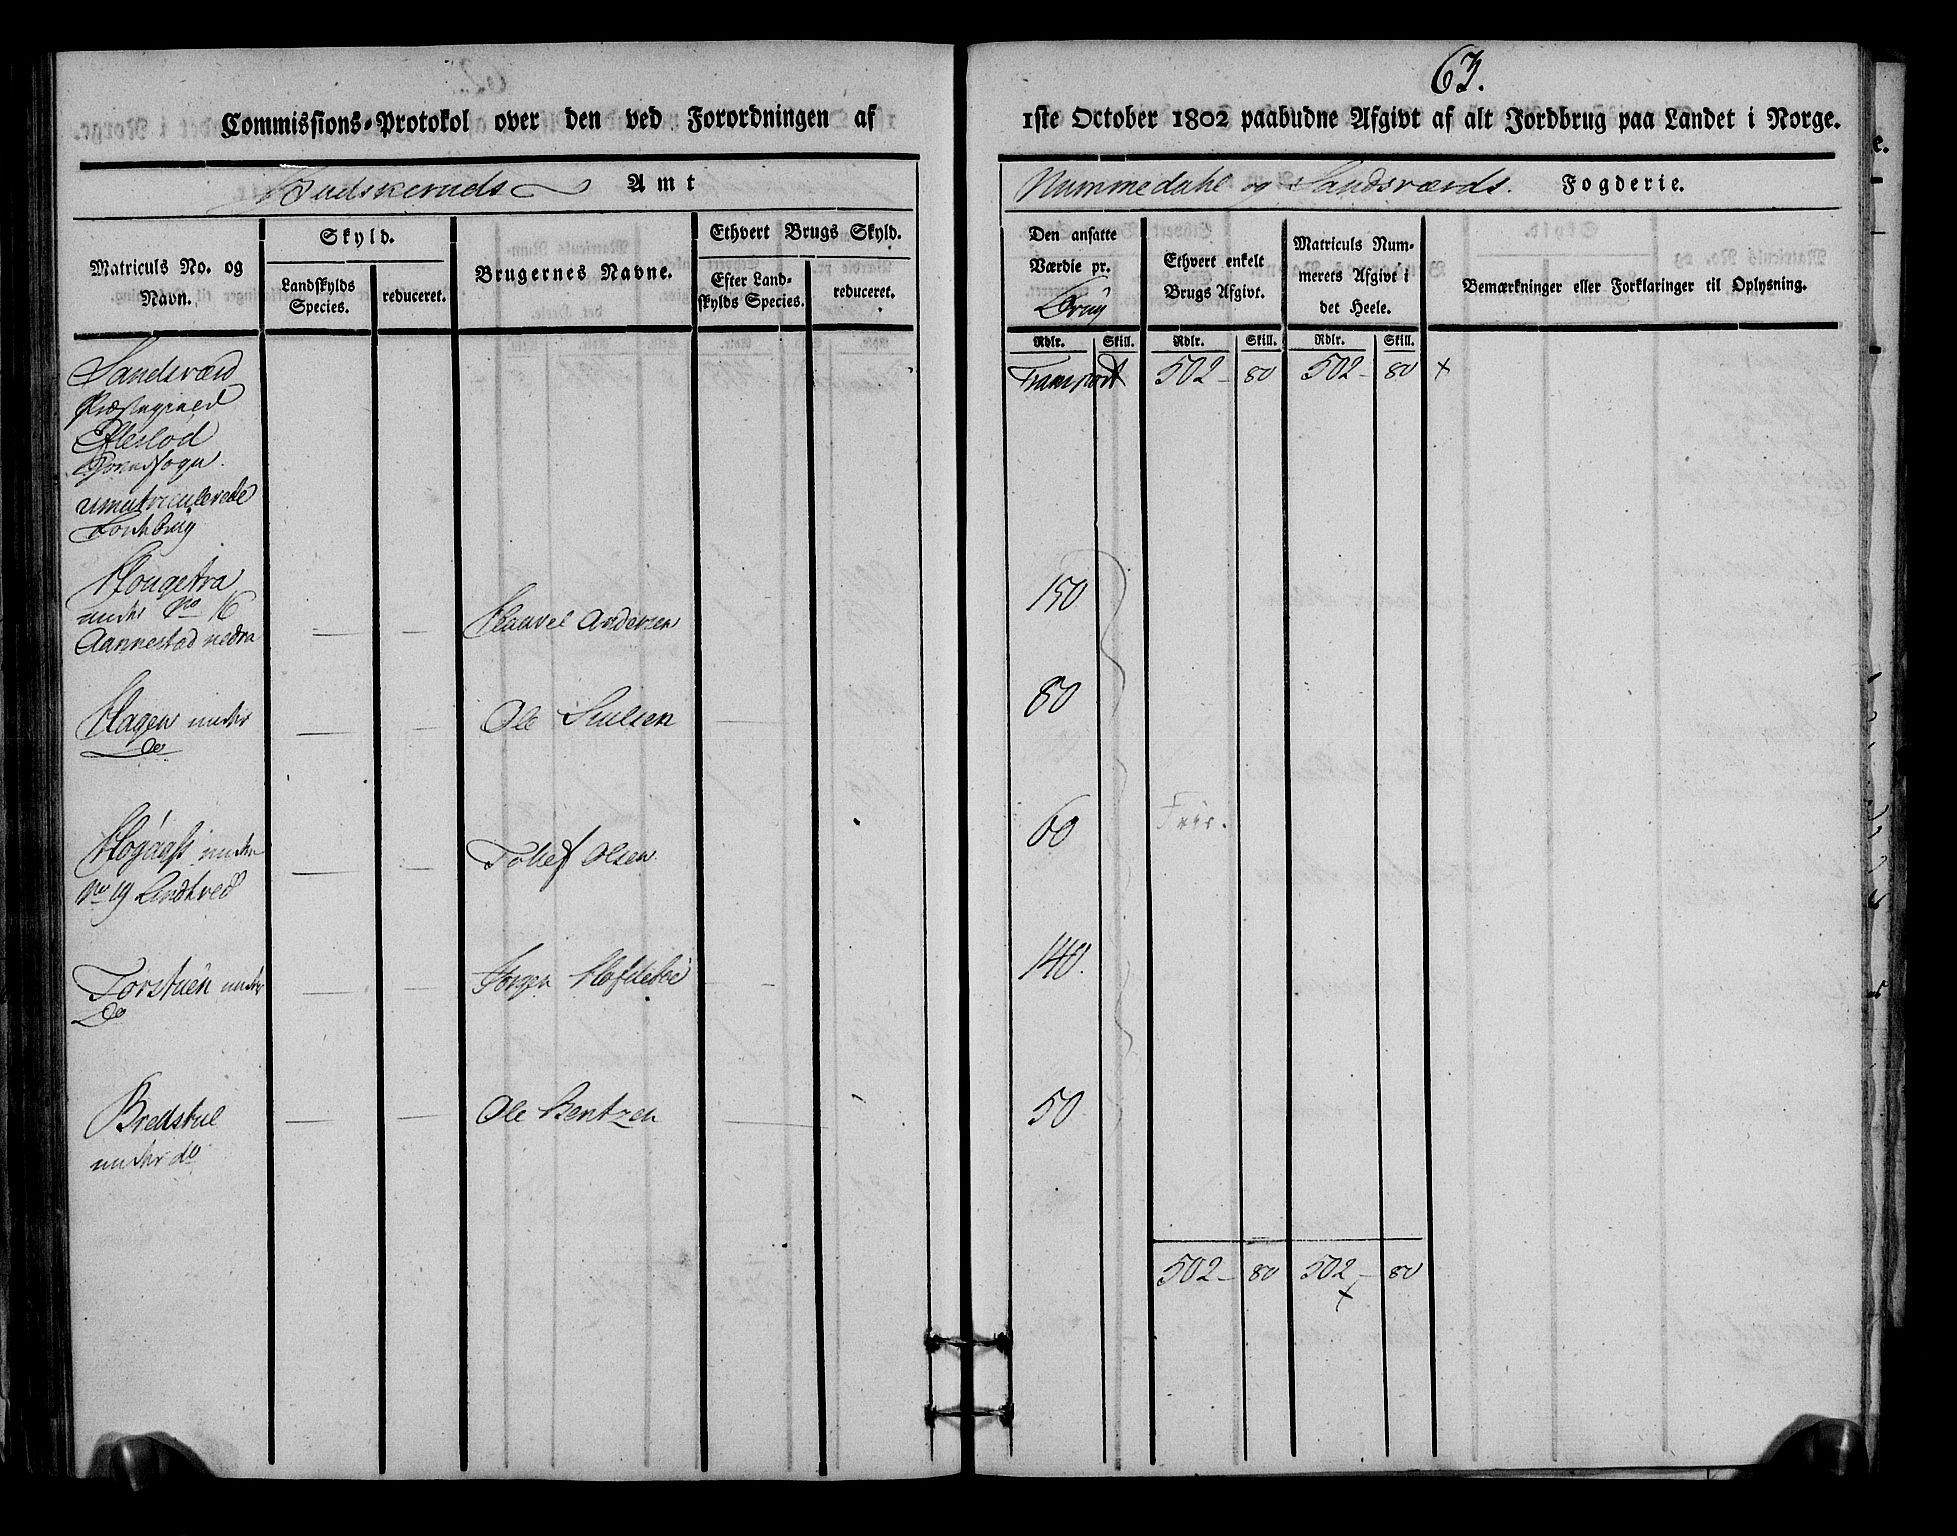 63.
Commissions-Protokol over den ved Forordningen af 1ste October 1802 paabudne Afgivt af alt Jordbrug paa Landet i Norge.
Budskeruds Amt
Nummedahl og Sandsværds. Fogderie.
Matriculs No. og Navn.
Skyld.
Landskylds Species.
reduceret.
Brugernes Navne.
Ethvert Brugs Skyld.
Efter Landskylds Species.
reduceret.
Den ansatte Værdie pr. Brug
Ethvert enkelt Brugs Afgivt.
Matriculs Nummerets Afgivt i det Heele.
Bemærkninger eller Forklaringer til Oplysning.
Rdlr. Skill. Rdlr. Skill. Rdlr. Skill.
Sandsværd
Præstegield
Efteslød
Sogn
umatriculerede
Transport 502 - 80 502 - 80 +
Hougetra
under No 16
Aannestad nedra
Haavel Andersen
150
Hagen under
Do
Ole
80
Høyaass under
No 19 Lindtved
Tollef Olsen
60 Frie.
Torstuen under
Do
Jørgen
140.
Bredstul
under do
Ole Bentzen
50
502 - 80 502 - 80
+